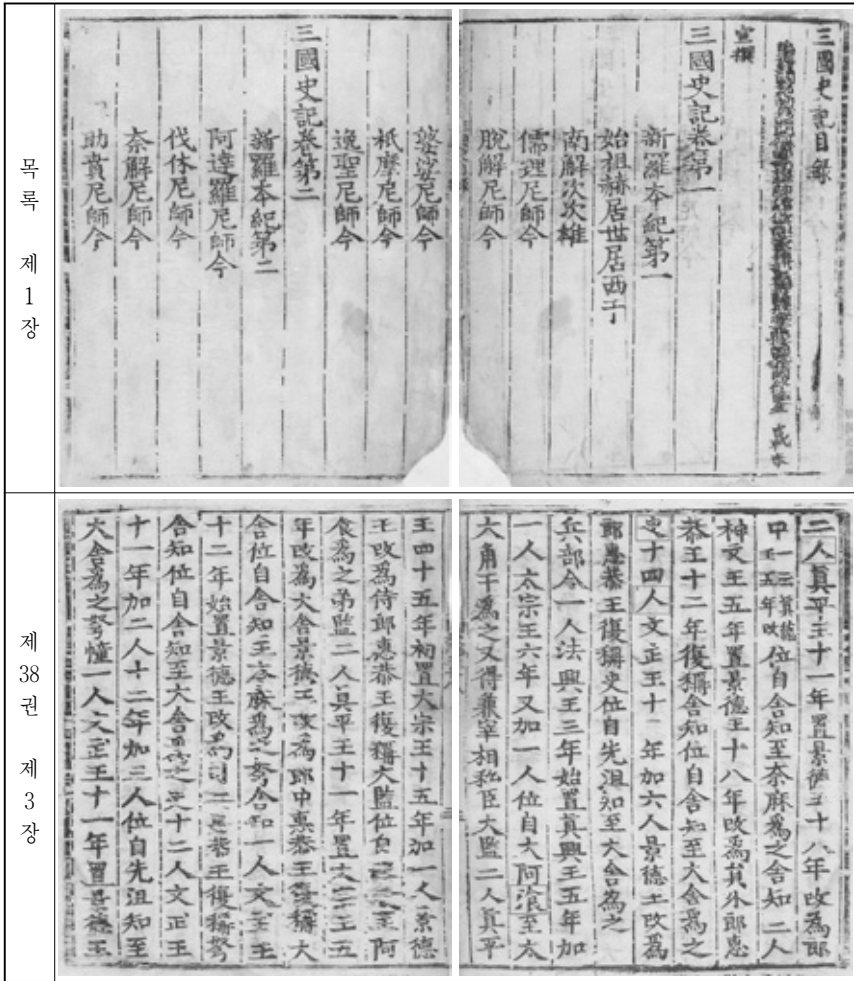 목록 제1장
三國史記目録
宣撰
三國史記卷第一
新羅本紀第一
始祖赫居世居西干
南解次次雄
儒理尼師今
脫解尼師今
婆娑尼師今
祇摩尼師今
逸聖尼師今
三國史記卷第二
新羅本紀第二
阿達羅尼師今
伐休尼師今
奈解尼師今
助賁尼師今
제38권 제3장
二人真平王十一年置景德王十八年改為郎
中一云真德王五年改位自舍知至奈麻為之舍知二人
神文王五年置景德王十八年改為貟外郎惠
恭王十二年復稱舍知位自舍知至大舍為之
史十四人文正王十一年加六人景德王改為
郎惠恭王復稱史位自先沮知至大舍為之
兵部令一人法興王三年始置真興王五年加
一人太宗王六年又加一人位自大阿湌至太
大角干為之又得兼宰相私臣大監二人真平
王四十五年初置大宗王十五年加一人景德
王改為侍郎惠恭王復稱大監位自至阿
湌為之弟監二人真平王十一年置大宗王五
年改為大舍景德王改為郎中惠恭王復稱大
舍位自舍知至奈麻為之弩舍知一人文正王
十二年始置景德王改為司兵惠恭王復稱弩
舍知位自舍知至大舍為之史十二人文正王
十一年加二人十二年加三人位自先沮知至
大舍為之弩幢一人文正王十一年置景德王